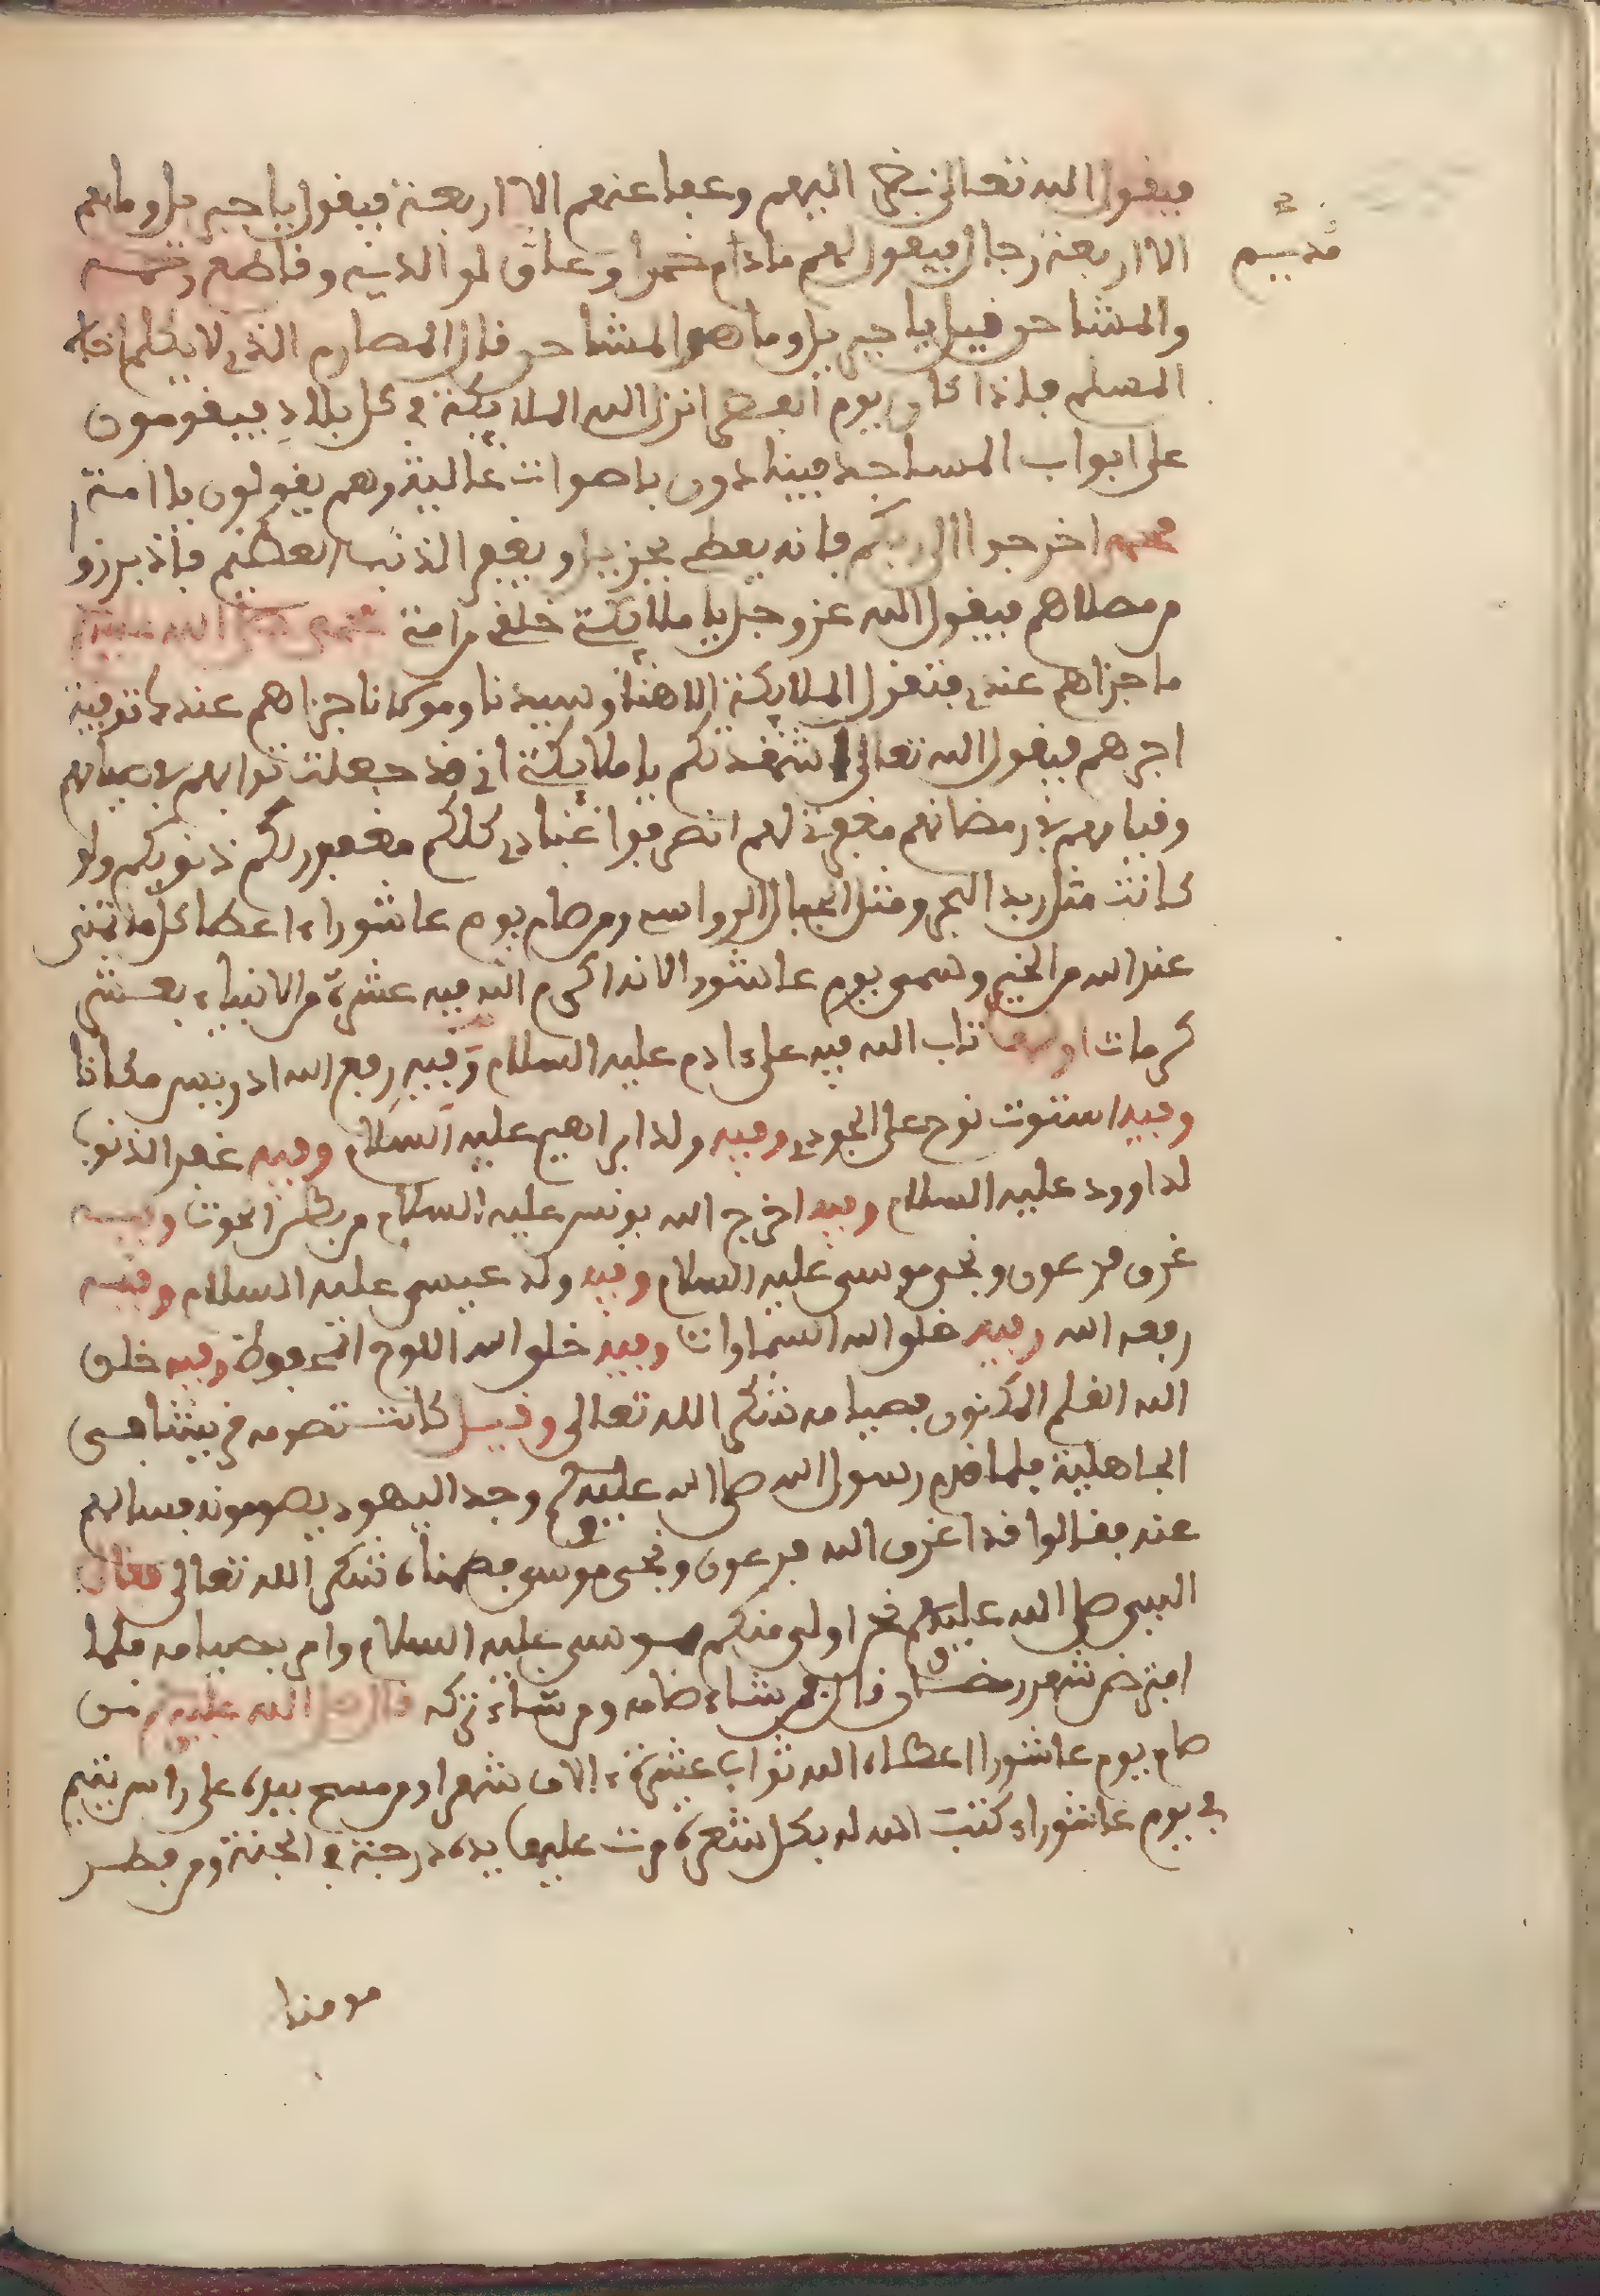 فيقول الله تعالى نظر اليهم وعفا عنهم الا اربعة فيقول يا جبريل وما هم
الا اربعة رجال فيقول لهم مدام خمرا وعاق لوالديه وقاطع رحمه
مديم
والمشاحن قيل يا جبريل وما هو المشاحن قال المصارم الذي لا يكلم اخاه
المسلم فاذا كان يوم الفطر انزل الله الملايكة في كل بلاد فيقومون
على ابواب المساجد فينادون باصوات عالية وهم يقولون يا امة
محمد اخرجوا الى ربكم فانه يعطي الجزيل ويغفر الذنب العظيم فاذ برزو
من مصلاهم فيقول الله عز وجل يا ملايكة خلقي من امة محمد صلى الله عليه
ما جزاهم عندي فتقول الملايكة الاهنا وسيدنا ومولانا جزاهم عندك توفية
اجرهم فيقول الله تعالى اشهدكم يا ملايكة اني قد جعلت ثوابهم في صيامهم
وقيامهم في رمضانهم مغفرة لهم انصرفوا عبادي كلكم مغفور لكم ذنوبكم ولو
كانت مثل زبد البحر ومثل الجبال الرواسه ومن صام يوم عاشوراء اعطا كل ما تمنى
عند الله من الخير وسمى يوم عاشور الانه اكرم الله فيه عشرة من الانبياء بعشر
كرمات اولها تاب الله فيه على ءادم عليه السلام وفيه رفع الله ادريس مكانا
وفيه استوت نوح على الجودي وفيه ولد ابراهيم عليه السلام وفيه غفر الذنوب
لداوود عليه السلام وفيه اخرج الله يونس عليه السلام من بطن الحوت وفيه
غرق فرعون ونجى موسى عليه السلام وفيه ولد عيسى عليه السلام وفيه
رفعه الله وفيه خلق الله السماوات وفيه خلق الله اللوح المحفوظ وفيه خلق
الله القلم المكنون فصيامه شكر الله تعالى وقيل كانت تصومه قريش فى
الجاهلية فلما قدم رسول الله صلى الله عليه وسلم وجد اليهود يصومونه فسالهم
عنه فقالوا قد اغرق الله فرعون ونجى موسى فصمناه شكر الله تعالى فقال
النبي صلى الله عليه وسلم نحن اولى منكم بموسى عليه السلام وامر بصيامه فلما
افترض شهر رمضان قال من شاء صامه ومن شاء تركه قال صلى الله عليه وسلم من
صام يوم عاشورا اعطاه الله ثواب عشرة ءالاف شهرا ومن مسح بيده على راس يتيم
في يوم عاشوراء كتب الله له بكل شعرة مرت عليها يده درجة في الجنة ومن فطر
مومنا